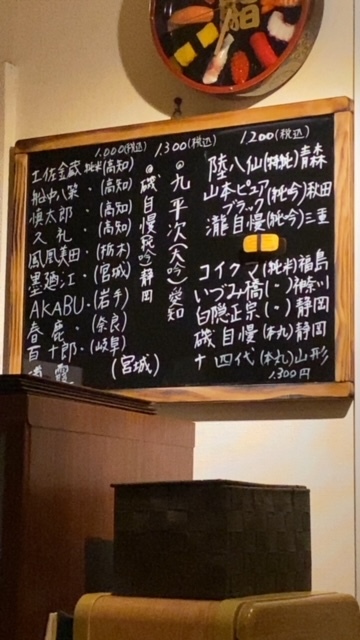 鮨
1.000(税込)
土佐金蔵 純米(高知)
船中八策・(高知)
慎太郎・(高知)
久礼・(高知)
鳳凰美田・(栃木)
墨廼江・(宮城)
AKABU・(岩手)
春鹿・(奈良)
百十郎・(岐阜)
(宮城)
1.300(税込)
九平次(大吟)愛知
磯自慢 静岡
1.200(税込)
陸八仙(特純)青森
山本ピュア(純吟)秋田
ブラック
瀧自慢(純吟)三重
コイクマ(純米)福島
いづみ橋(〃)神奈川
白隠正宗(〃)静岡
磯自慢(本丸)静岡
十四代(本丸)山形
1.300円